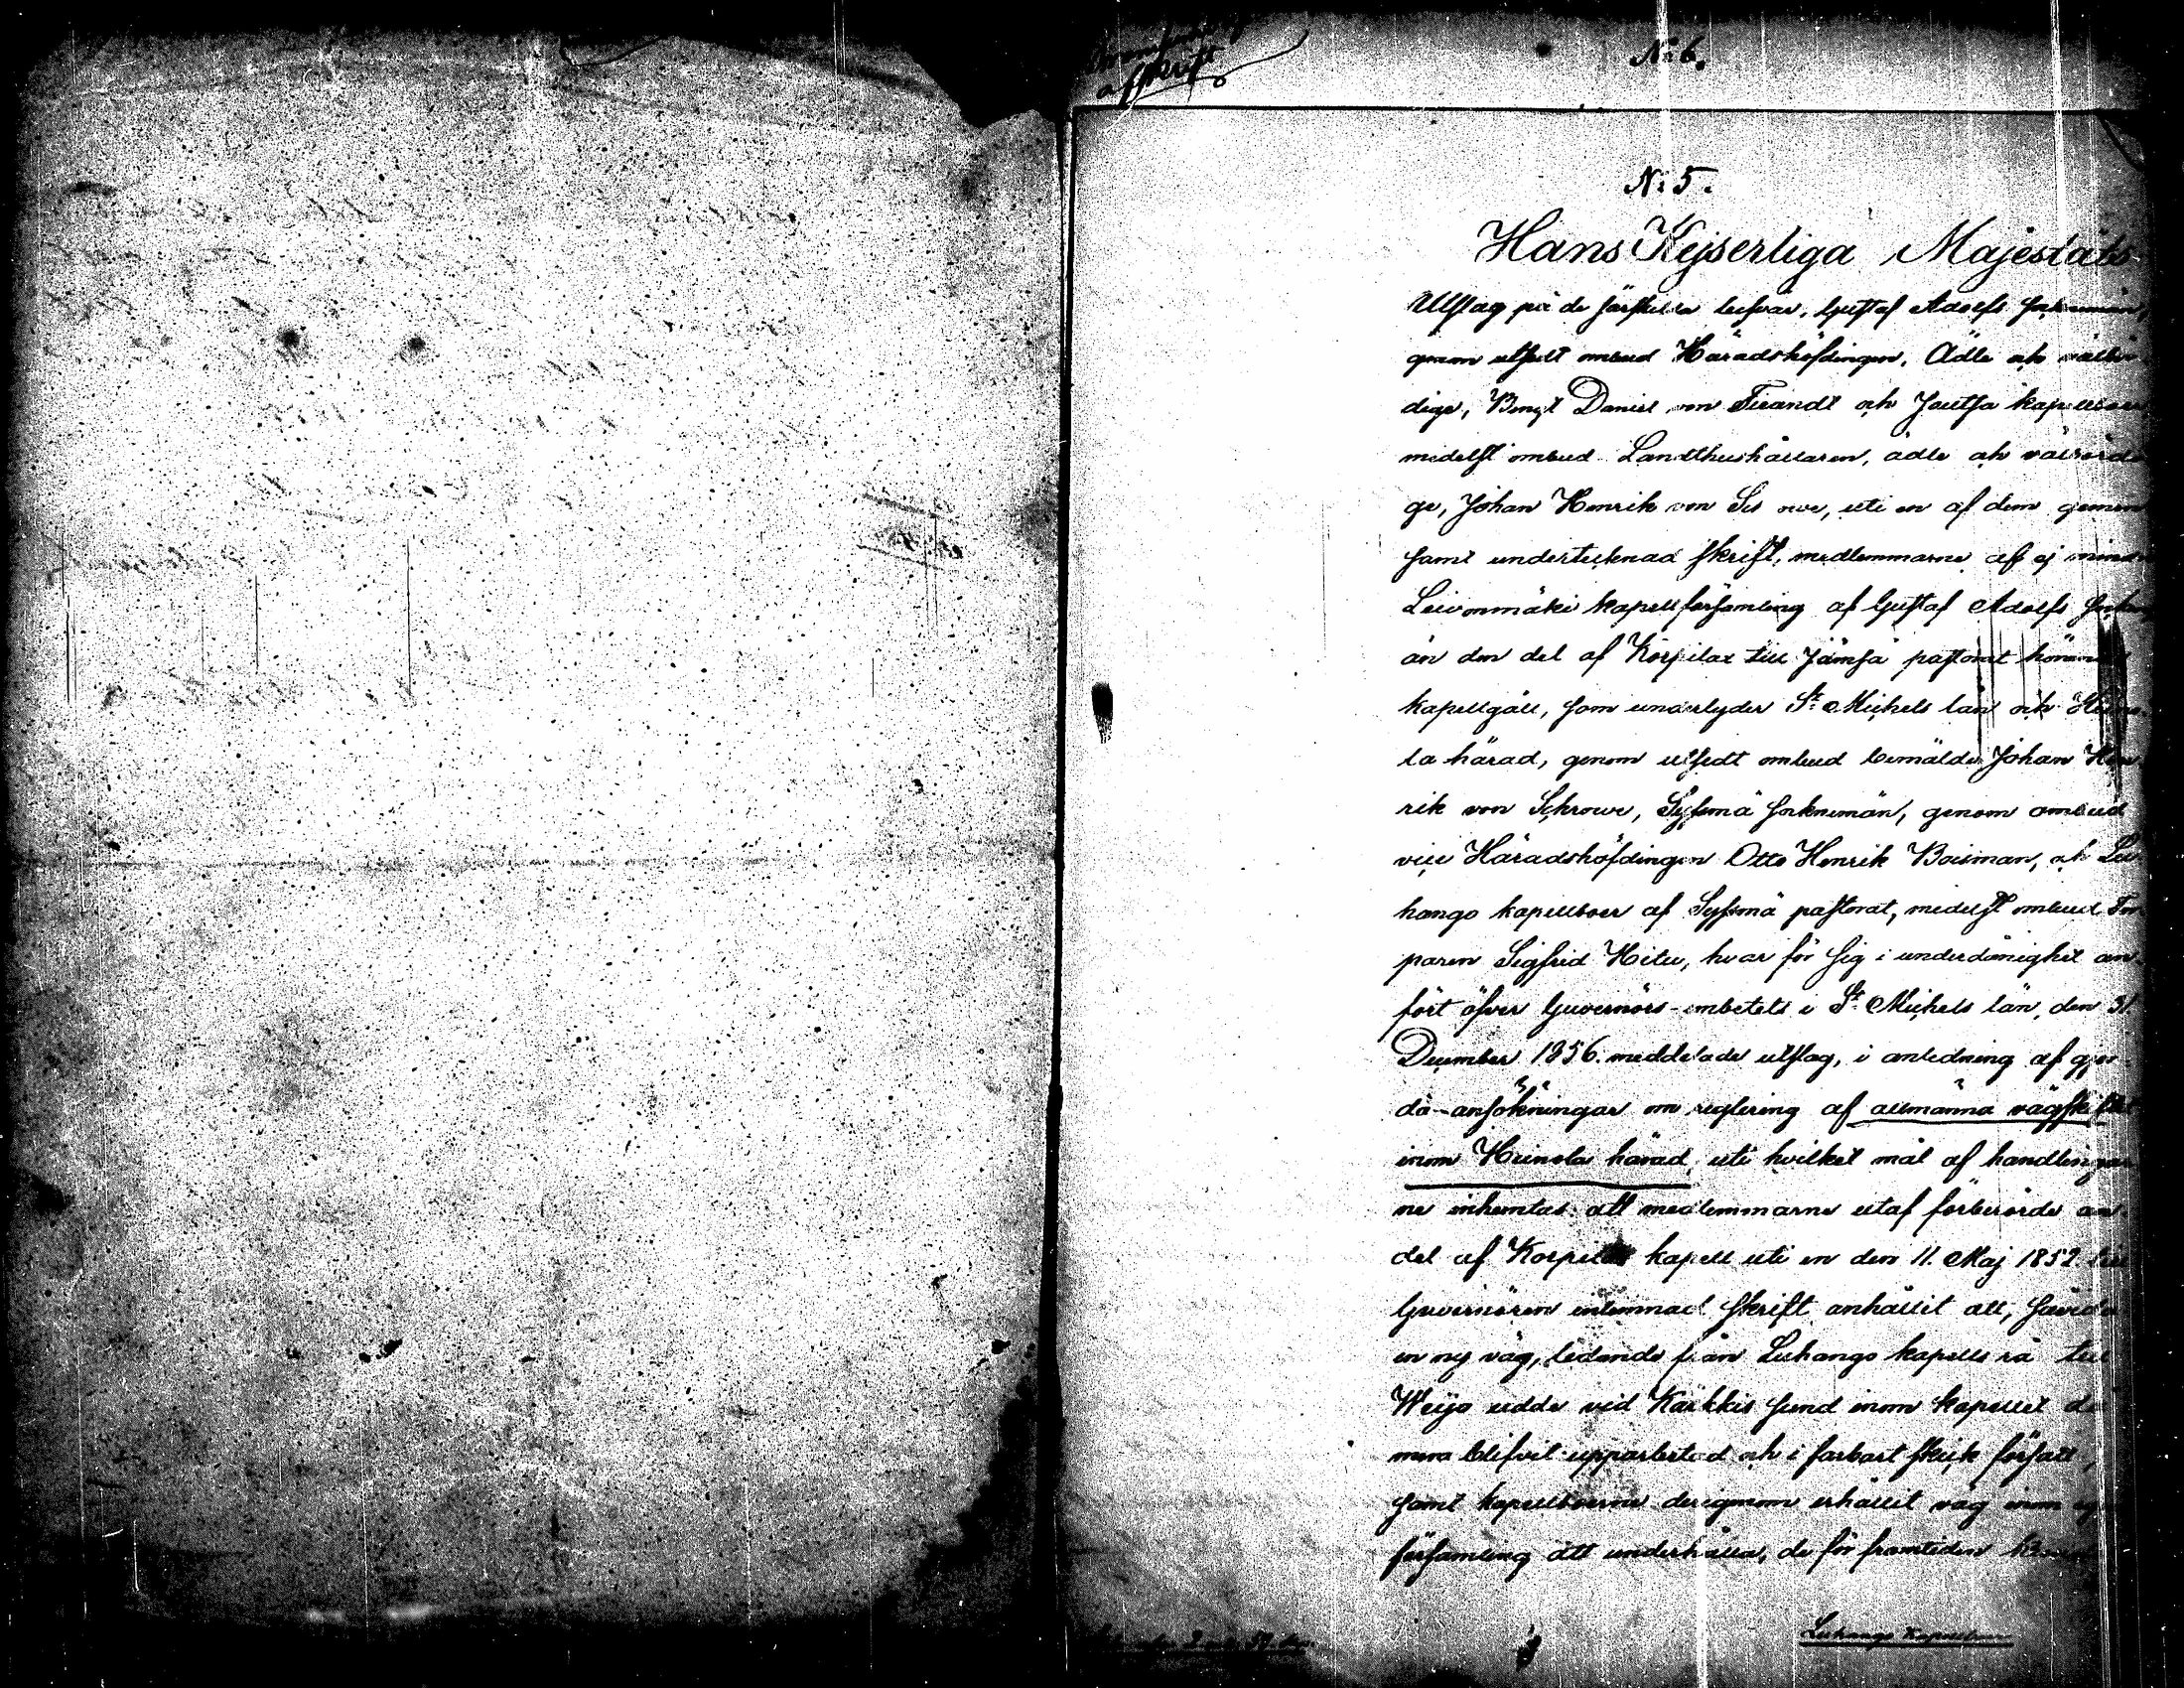 afskrift
N: 6.
N: 5.
Hans Kejserliga Majestäts
Utslag på de särskilda besvär, Gustaf Adolfs sokneman,
genom utsedt ombud Häradshöfdingen, Ädle och välbör-
dige, Bengt Daniel von Tirandt och Joutsa kapellboer
medelst ombud Landthushållaren, ädle och välbördi
ge, Johan Henrik von Schrowe, uti en af dem gemen
samt undertecknad skrift, medlemmarne af ej mindre
Leivonmäki kapellförsamling af Gustaf Adolfs sokn
än den del af Korpilax till Jämsä pastorat hörande
kapellgäll, som underlyder St Michels län och Heino-
la härad, genom utsedt ombud bemälde Johan Hen-
rik von Schrowe, Sysmä soknemän, genom ombud
vice Häradshöfdingen Otto Henrik Boisman, och Lu-
hango kapellboer af Sysmä pastorat, medelst ombud Tor
paren Sigfrid Heter, hvar för sig i underdånighet an
fört öfver Guvernörs-embetets i St Michels län, den 31.
December 1856. meddelade utslag, i anledning af gjor
da ansökningar om reglering af allmänna vägskiftet
inom Heinola härad, uti hvilket mål af handlingar
ne inhemtas: att medlemmarne utaf förberörde an
del af Korpilax kapell uti en den 11. Maj 1852. till
Guvernören inlemnad skrift anhållit att, sävida
en ny väg, ledande från Luhango kapells rå till
Weijo udde vid Kärkkis sund inom kapellet
mera blifvit upparbetad och i farbart skick försatt,
samt kapellboerne derigenom erhållit väg inom
församling att underhålla, de för framtiden
Luhango kapellboer